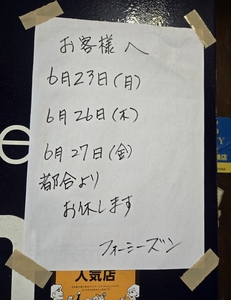 お客様へ
6月23日(月)
6月26日(木)
6月27日(金)
都合より
お休します
フォーシーズン
e
人気店